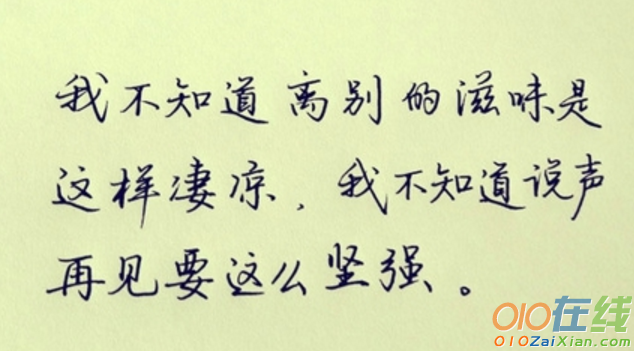 我不知道离别的滋味是
这样凄凉，我不知道说声
再见要这么坚强。
010在线
010ZaiXian.com